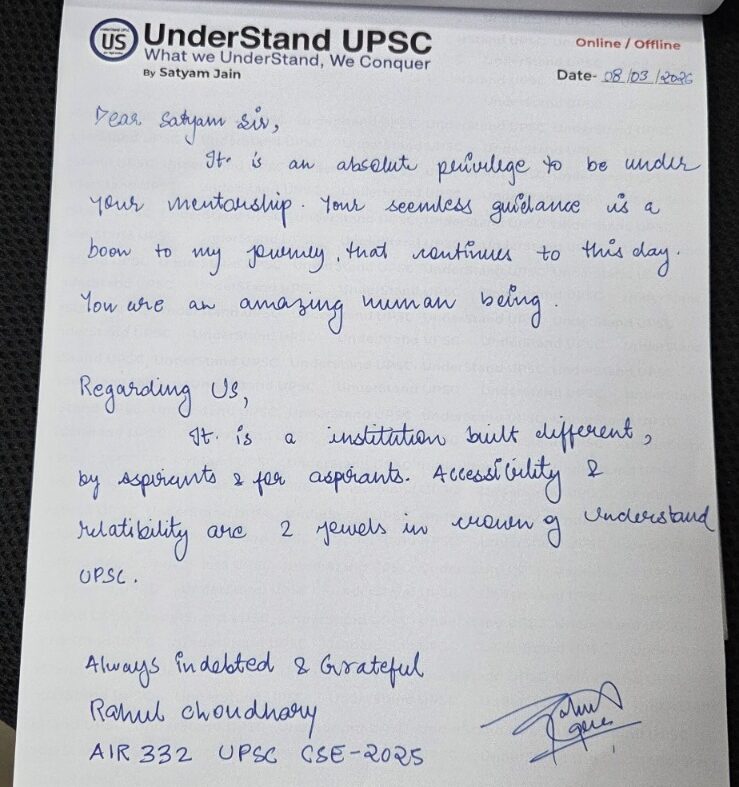 US
UnderStand UPSC
What we UnderStand, We Conquer
By Satyam Jain
Online / Offline
Date- 08/03/2026
Dear Satyam Sir,
It is an absolute privilege to be under
your mentorship. Your seemless guidance is a
boon to my journey, that continues to this day.
You are an amazing human being.
Regarding US,
It is a institution built different,
by aspirants & for aspirants. Accessibility &
relatibility are 2 jewels in crown of Understand
UPSC.
Always indebted & Grateful
Rahul Choudhary
AIR 332 UPSC CSE-2025